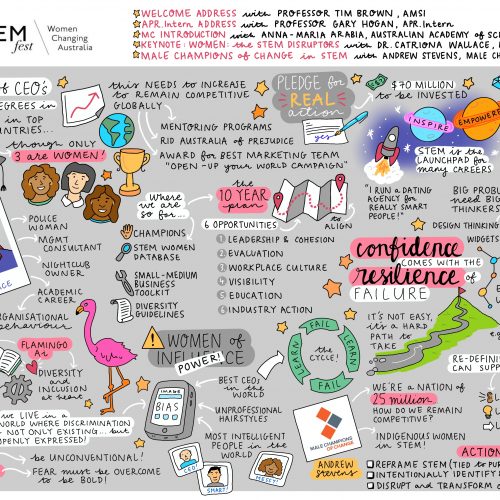 EM
fest
Women
Changing
Australia
WELCOME ADDRESS with PROFESSOR TIM BROWN, AMSI
APR.Intern ADDRESS with PROFESSOR GARY HOGAN, APR.Intern
MC INTRODUCTION with ANNA-MARIA ARABIA, AUSTRALIAN ACADEMY of SC
KEYNOTE: WOMEN: the STEM DISRUPTORS with DR. CATRIONA WALLACE,
MALE CHAMPIONS OF CHANGE in STEM with ANDREW STEVENS, MALE C
of CEO's
DEGREES in
in TOP
COUNTRIES...
though ONLY
3 are WOMEN!
this NEEDS to INCREASE
to REMAIN COMPETITIVE
GLOBALLY
MENTORING PROGRAMS
RID AUSTRALIA of PREJUDICE
AWARD for BEST MARKETING TEAM
"OPEN-UP your WORLD CAMPAIGN"
PLEDGE for
REAL
action
yes
$70 MILLION
to BE INVESTED
INSPIRE
EMPOWER
STEM is the
LAUNCHPAD for
MANY CAREERS
"I RUN a DATING
AGENCY for
REALLY SMART
PEOPLE!"
BIG PROBLE
NEED BIG
THINKERS
DESIGN THINKING
WIDGETS
POLICE
WOMAN
MGMT
CONSULTANT
NIGHTCLUB
OWNER
ACADEMIC
CAREER
ORGANISATIONAL
BEHAVIOUR
Where
we are
so far...
CHAMPIONS
STEM WOMEN
DATABASE
SMALL-MEDIUM
BUSINESS
TOOLKIT
DIVERSITY
GUIDELINES
the
10 YEAR
plan
6 OPPORTUNITIES
to
ALIGN
1 LEADERSHIP & COHESION
2 EVALUATION
3 WORKPLACE CULTURE
4 VISIBILITY
5 EDUCATION
6 INDUSTRY ACTION
confidence
COMES WITH THE
resilience of
FAILURE
IT'S NOT EASY,
it's a HARD
PATH to
TAKE
RE-DEFINI
CAN SUPP
FLAMINGO
Ai
DIVERSITY
and
INCLUSION
at heart
WE LIVE in a
WORLD WHERE DISCRIMINATION
NOT ONLY EXISTING... but
OPENLY EXPRESSED!
be UNCONVENTIONAL!
FEAR must be OVERCOME
to be BOLD!
WOMEN of
INFLUENCE
POWER!
IMAGE
BIAS
BEST CEO's
in the
WORLD
UNPROFESSIONAL
HAIRSTYLES
MOST INTELLIGENT
PEOPLE in the
WORLD
CEO
SMART
MESSY!
FAIL
LEARN
FAIL
LEARN
the
CYCLE!
MALE CHAMPIONS
OF CHANGE
ANDREW
Stevens
WE'RE a NATION of
25 million
HOW DO WE REMAIN
COMPETITIVE?
INDIGENOUS WOMEN
in STEM!
ACTION
REFRAME STEM (TIED to PUR
INTENTIONALLY IDENTIFY &
DISRUPT and TRANSFORM